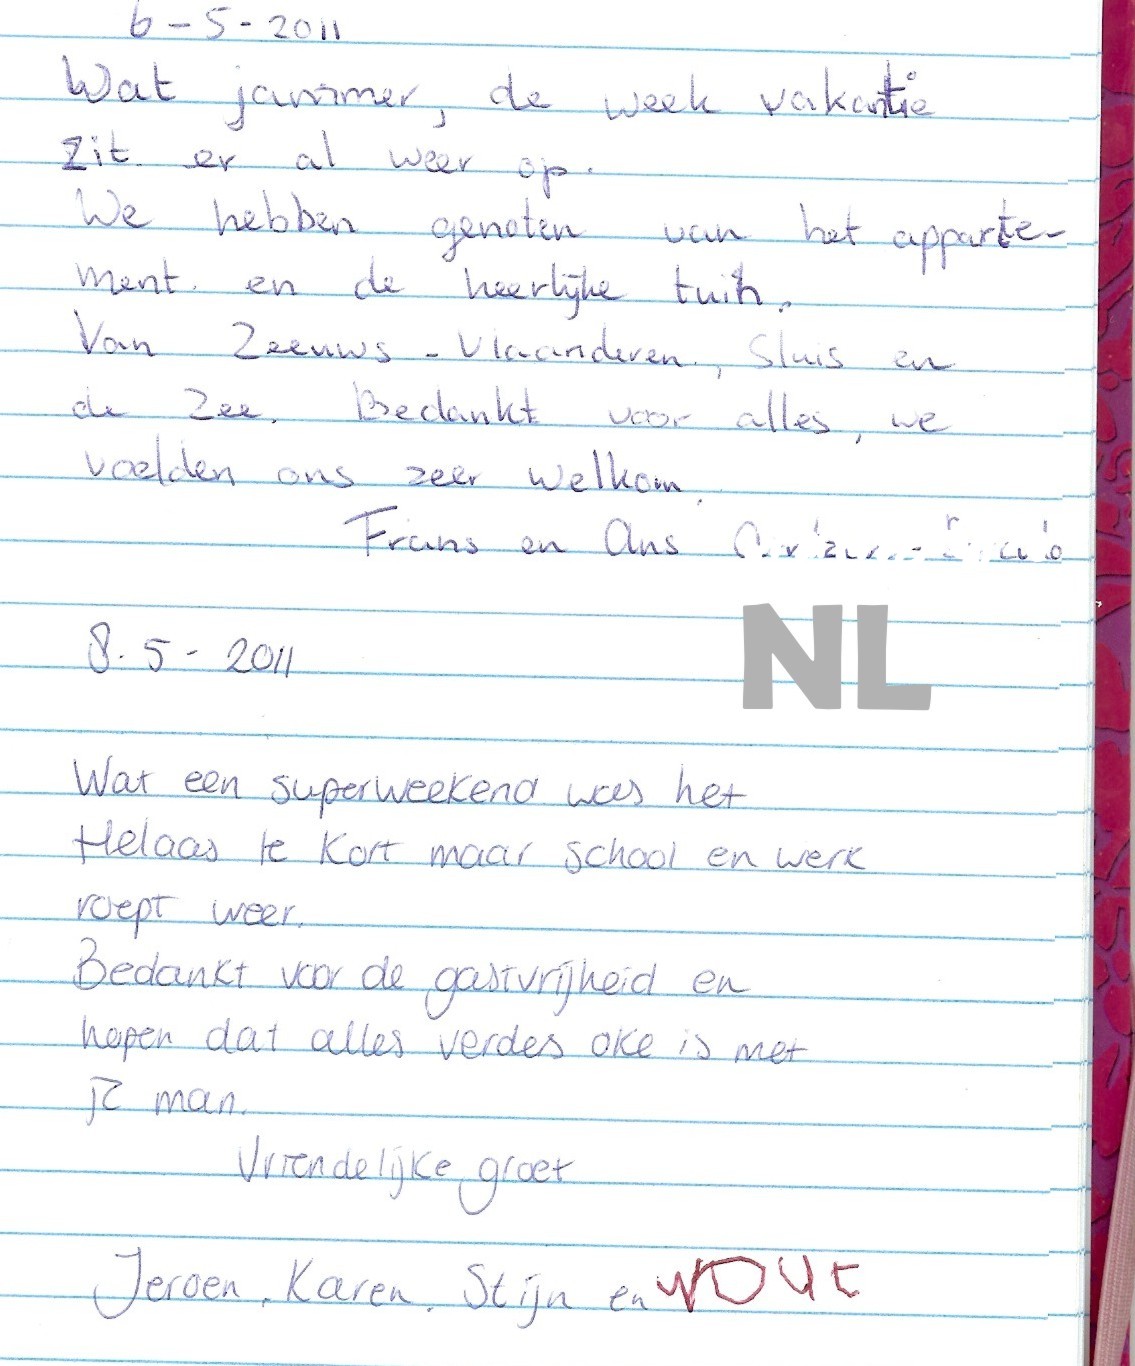 6-5-2011
Wat jammer, de week vakantie
zit er al weer op.
We hebben genoten van het apparte-
ment en de heerlijke tuin.
Van Zeeuws-Vlaanderen, Sluis en
de Zee. Bedankt voor alles, we
voelden ons zeer welkom.
Frans en Ans
NL
8.5-2011
Wat een superweekend was het
Helaas te kort maar school en werk
roept weer.
Bedankt voor de gastvrijheid en
hopen dat alles verdes oke is met
je man.
Vriendelijke groet
Jeroen, Karen, Stijn en WOUt